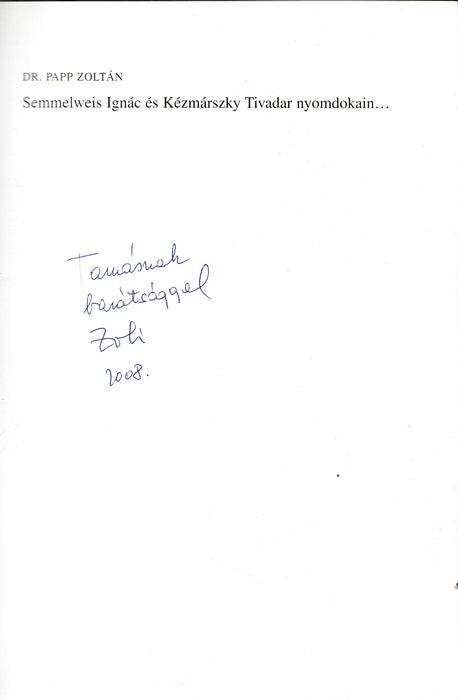 DR. PAPP ZOLTÁN
Semmelweis Ignác és Kézmárszky Tivadar nyomdokain…
Tamásnak
barátsággal
Zoli
2008.